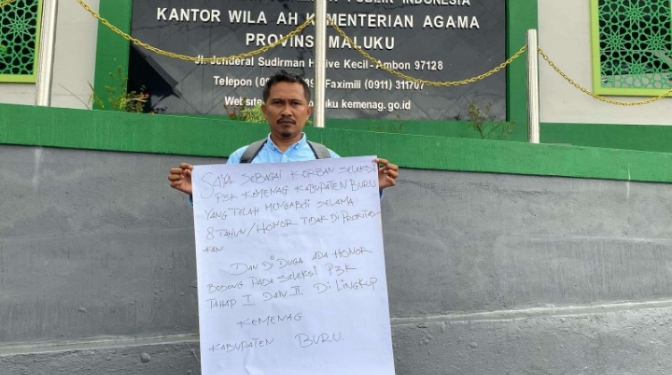 PUBLIK INDONESIA
KANTOR WILA AH KEMENTERIAN AGAMA
PROVINSI MALUKU
Jl. Jenderal Sudirman Hative Kecil - Ambon 97128
Telepon Faximili (0911) 311707
Web site kemenag.go.id
SAYA SEBAGAI KORBAN SELEKSI
P3K KEMENAG KABUPATEN BURU
YANG TELAH MENGABDI SELAMA
8 TAHUN/HONOR TIDAK DI PRORITAS
KAN
DAN DI DUGA ADA HONOR
BODONG PADA SELEKSI P3K
TAHAP I DAN II DI LINGKUP
KEMENAG
KABUPATEN BURU.